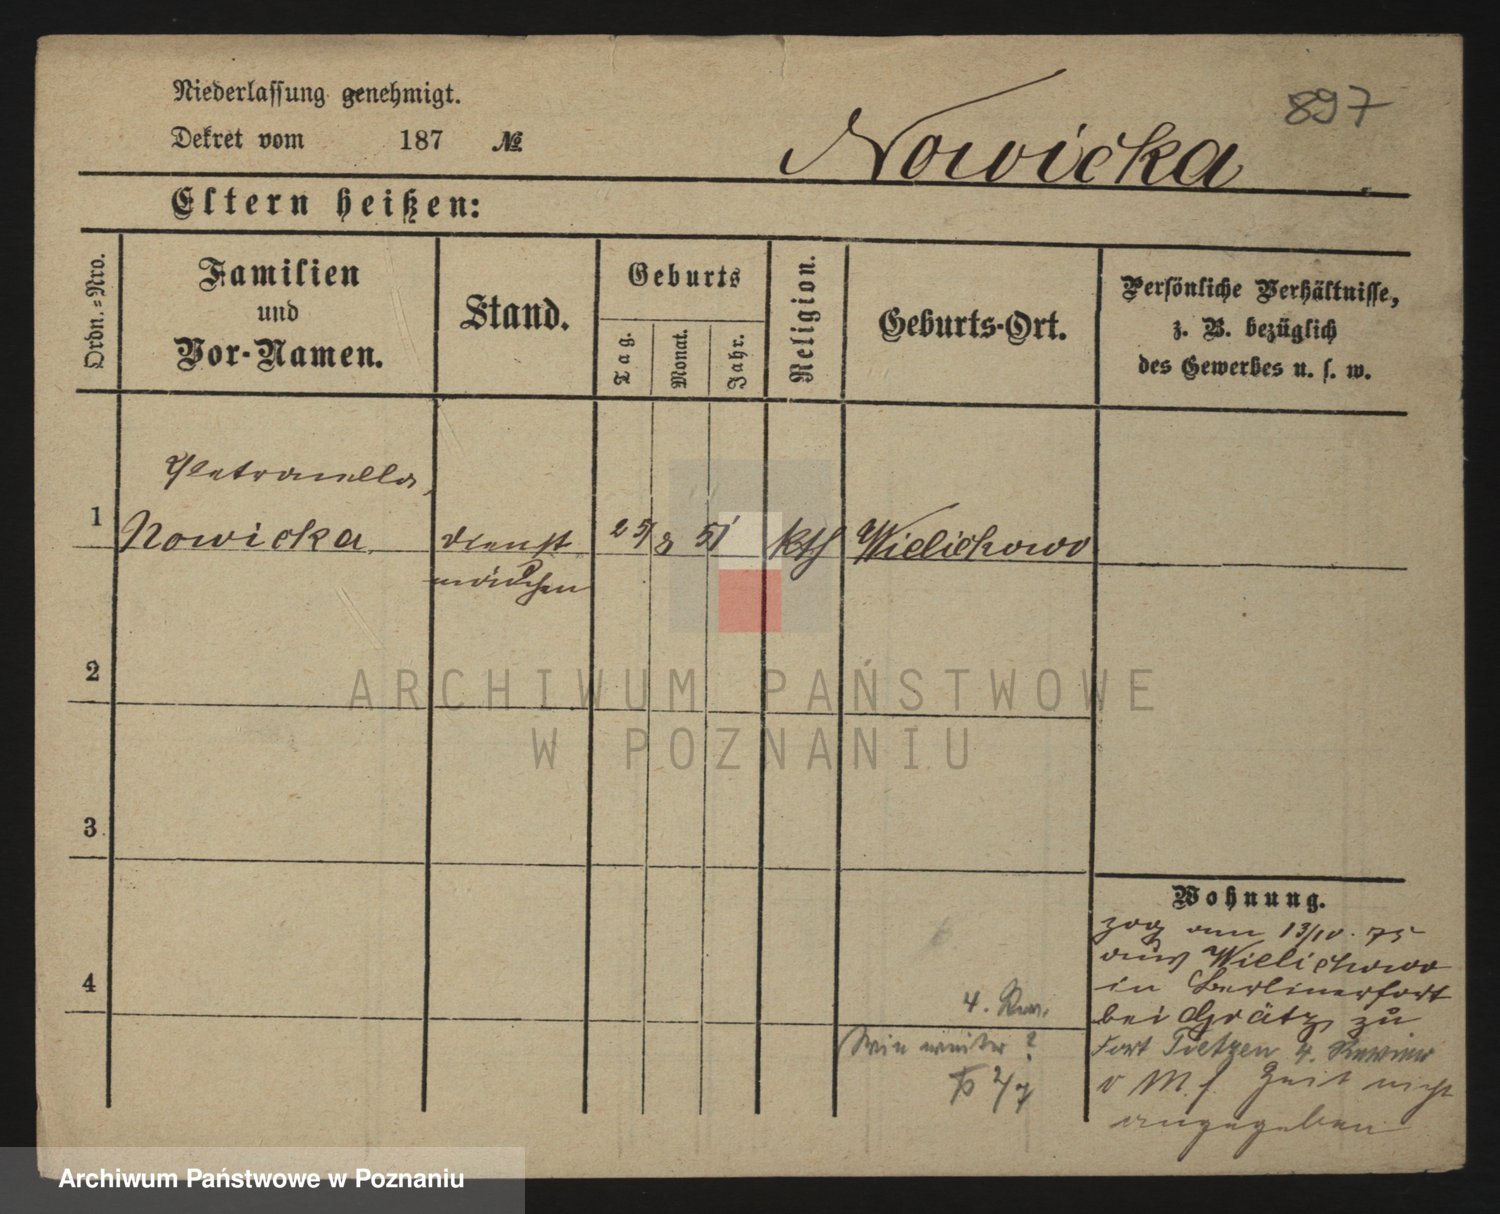 Niederlassung genehmigt.
Dekret vom 187 №
897
Nowicka
Eltern heißen:
Ordn.-Nro.
Familien
und
Vor-Namen.
Stand.
Geburts
Tag.
Monat.
Jahr.
Religion.
Geburts-Ort.
Persönliche Verhältnisse,
z. B. bezüglich
des Gewerbes u. s. w.
Petronella
1 Nowicka dienst 25/ 51 kth Wielichowo
mädchen
2
ARCHIWUM PAŃSTWOWE
W POZNANIU
3
Wohnung.
zog am 13/10. 75
aus Wielichowo
in Berlinerfort
bei Grätz zu
4
4. Rev.
Fort Tietzen 4. Revier
weiter ?
2/7
Zeit nicht
angegeben
Archiwum Państwowe w Poznaniu